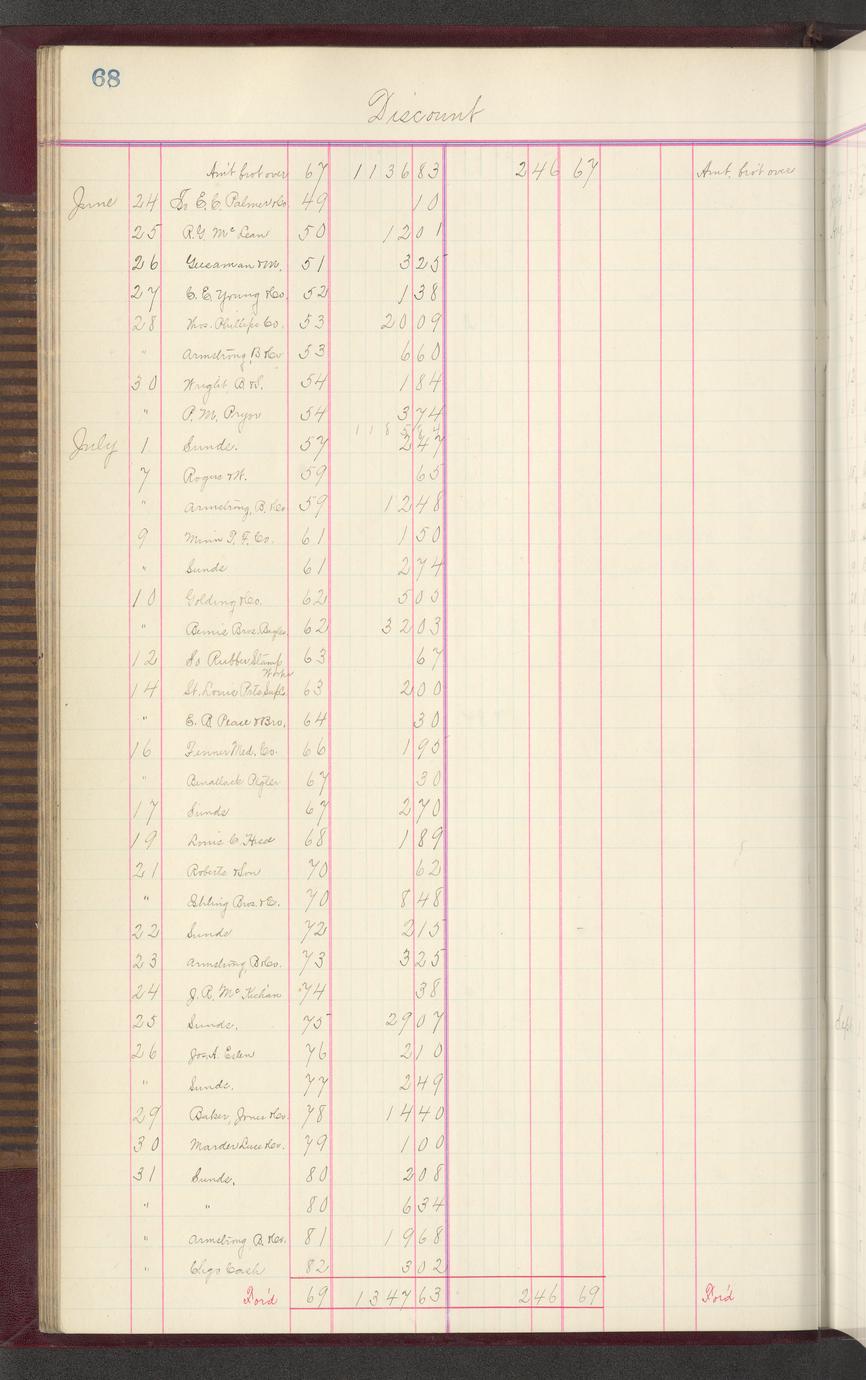 68
Discount
Am't brot over 67 1136 83 246 67 Amt. bro't over
June 24 To E.C. Palmer & Co 49 10
25 R.G. McLean 50 12 01
26 & M. 51 3 25
27 C.E. Young & Co. 52 1 38
28 Thos. Phillips Co. 53 20 09
" Armstrong, B & Co 53 6 60
30 Wright, B. & S. 54 1 84
" P.M. Pryor 54 3 74
118
July 1 Sunds. 57 2 47
7 Rogers & W. 59 65
" Armstrong, B. & Co 59 12 48
9 Minn T.F. Co. 61 1 50
" Sunds 61 2 74
10 Golding & Co. 62 5 05
" Bemis Bros. 62 32 03
12 So Rubber Stamp 63 67
Works
14 St. Louis 63 2 00
" E.R. Pease & Bro. 64 30
16 Fenner Med. Co. 66 1 95
" 67 30
17 Sunds 67 2 70
19 Louis C. 68 1 89
21 Roberts & Son 70 62
" Bros. & C. 70 8 48
22 Sunds 72 2 15
23 Armstrong, B & Co. 73 3 25
24 J.R. Mc 74 38
25 Sunds. 75 29 07
26 Jos. A. 76 2 10
" Sunds. 77 2 49
29 Baker, Jones & Co. 78 14 40
30 Marder Luse & Co. 79 1 00
31 Sunds. 80 2 08
" " 80 6 34
" Armstrong, B. & Co. 81 19 68
" Chgs Cash 82 3 02
For'd 69 1347 63 246 69 For'd